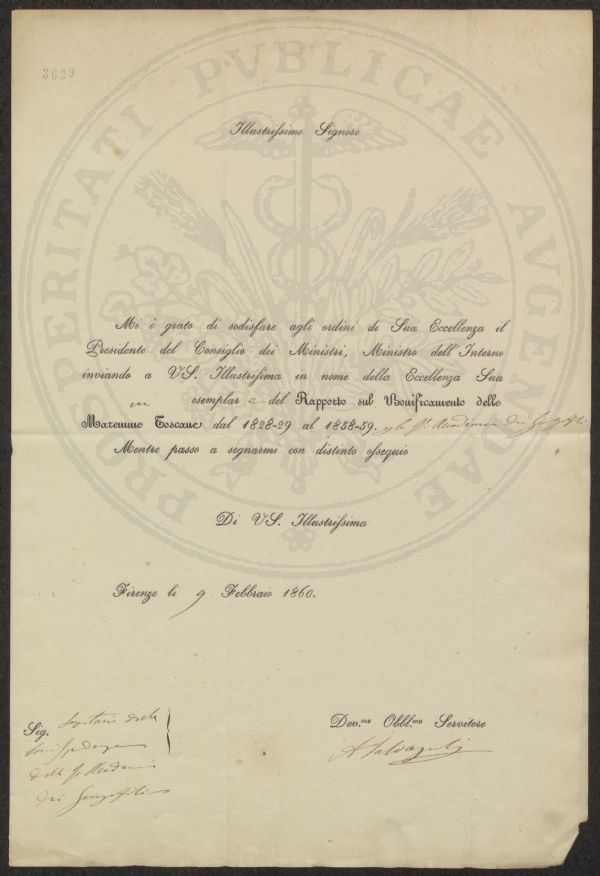 3639
PROSPERITATI PVBLICAE AVGENDAE
Illustrissimo Signore
Mi è grato di sodisfare agli ordini di Sua Eccellenza il
Presidente del Consiglio dei Ministri, Ministro dell'Interno
inviando a VS. Illustrissima in nome della Eccellenza Sua
un esemplar e del Rapporto sul Bonificamento delle
Maremme Toscane dal 1828-29 al 1858-59. Accademia dei Georgofili
Mentre passo a segnarmi con distinto ossequio
Di VS. Illustrissima
Firenze li 9 Febbraio 1860.
Dev.mo Obbl.mo Servitore
A Salvagnoli
Sig. Segretario della
Corrispondenza
della Accademia
dei Georgofili